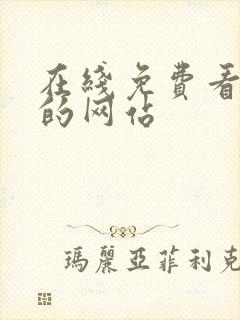 在綫免費看
的网站
瑪麗亞菲利克